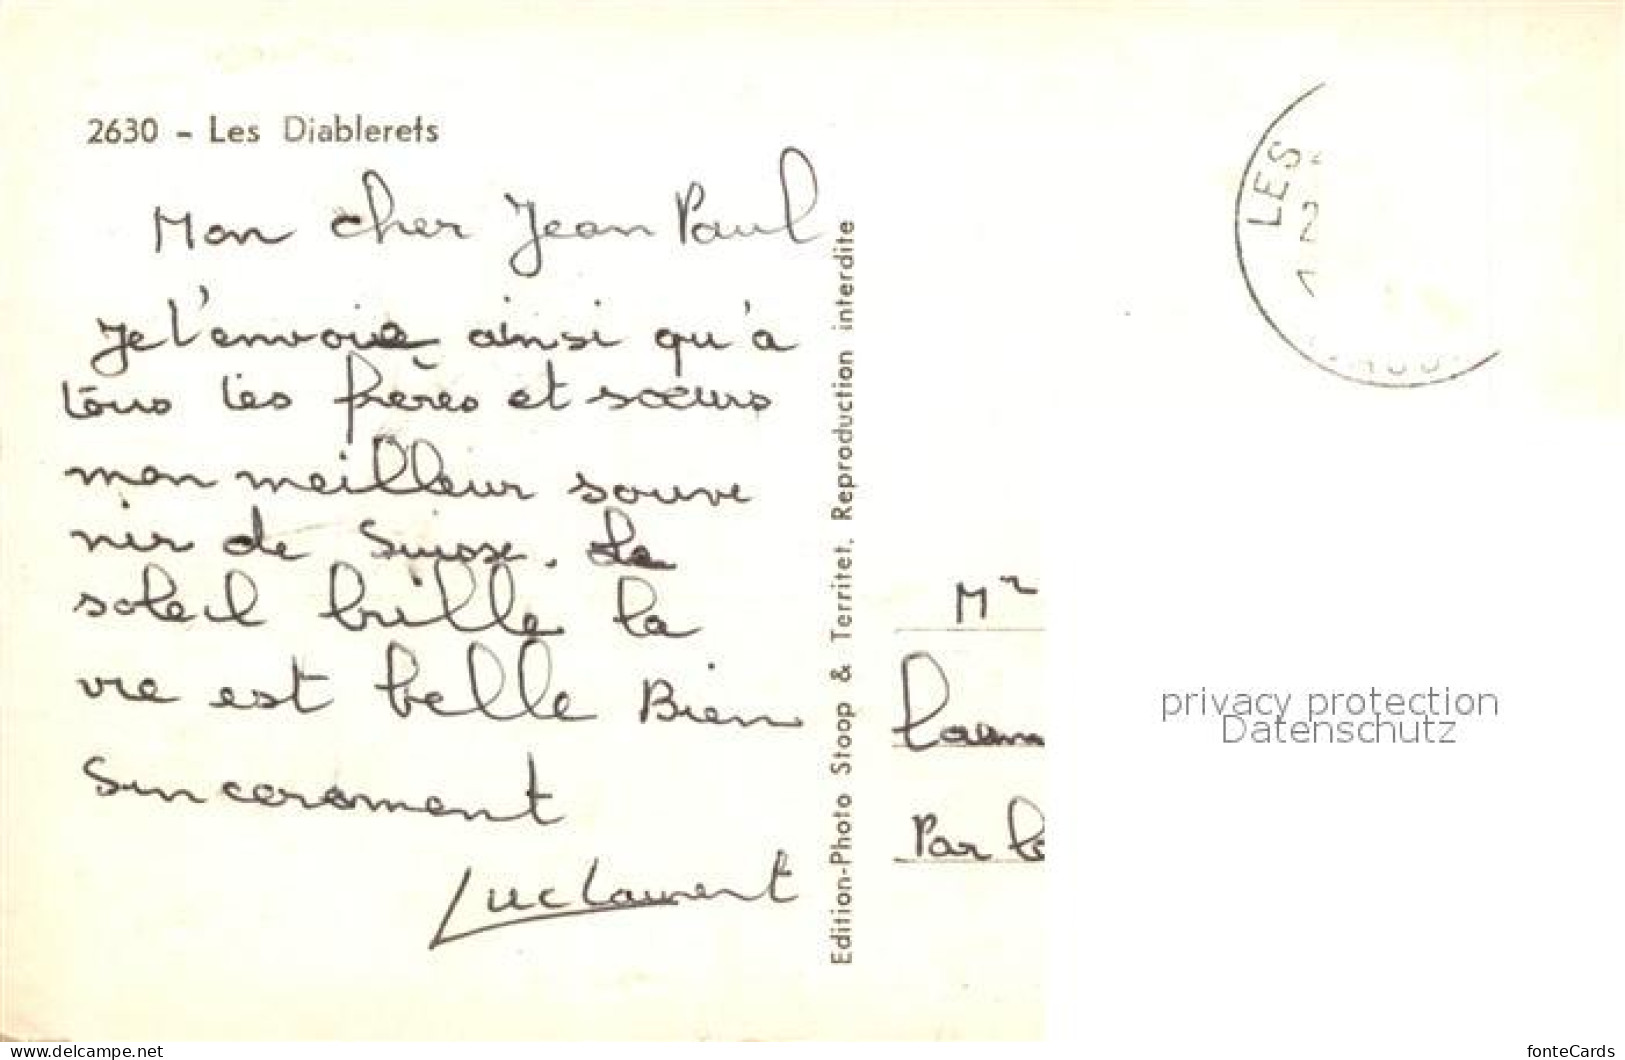 2630 - Les Diablerets
Mon cher Jean Paul
Je t'envoie ainsi qu'à
tous tes frères et sœurs
mon meilleur souve
nir de Suisse. Le
soleil brille la
vie est belle Bien
sincerement
Luc Laurent
Edition-Photo Stoop & Territet. Reproduction interdite
LES
2
1
Mr
Par
privacy protection
Datenschutz
www.delcampe.net
fonteCards